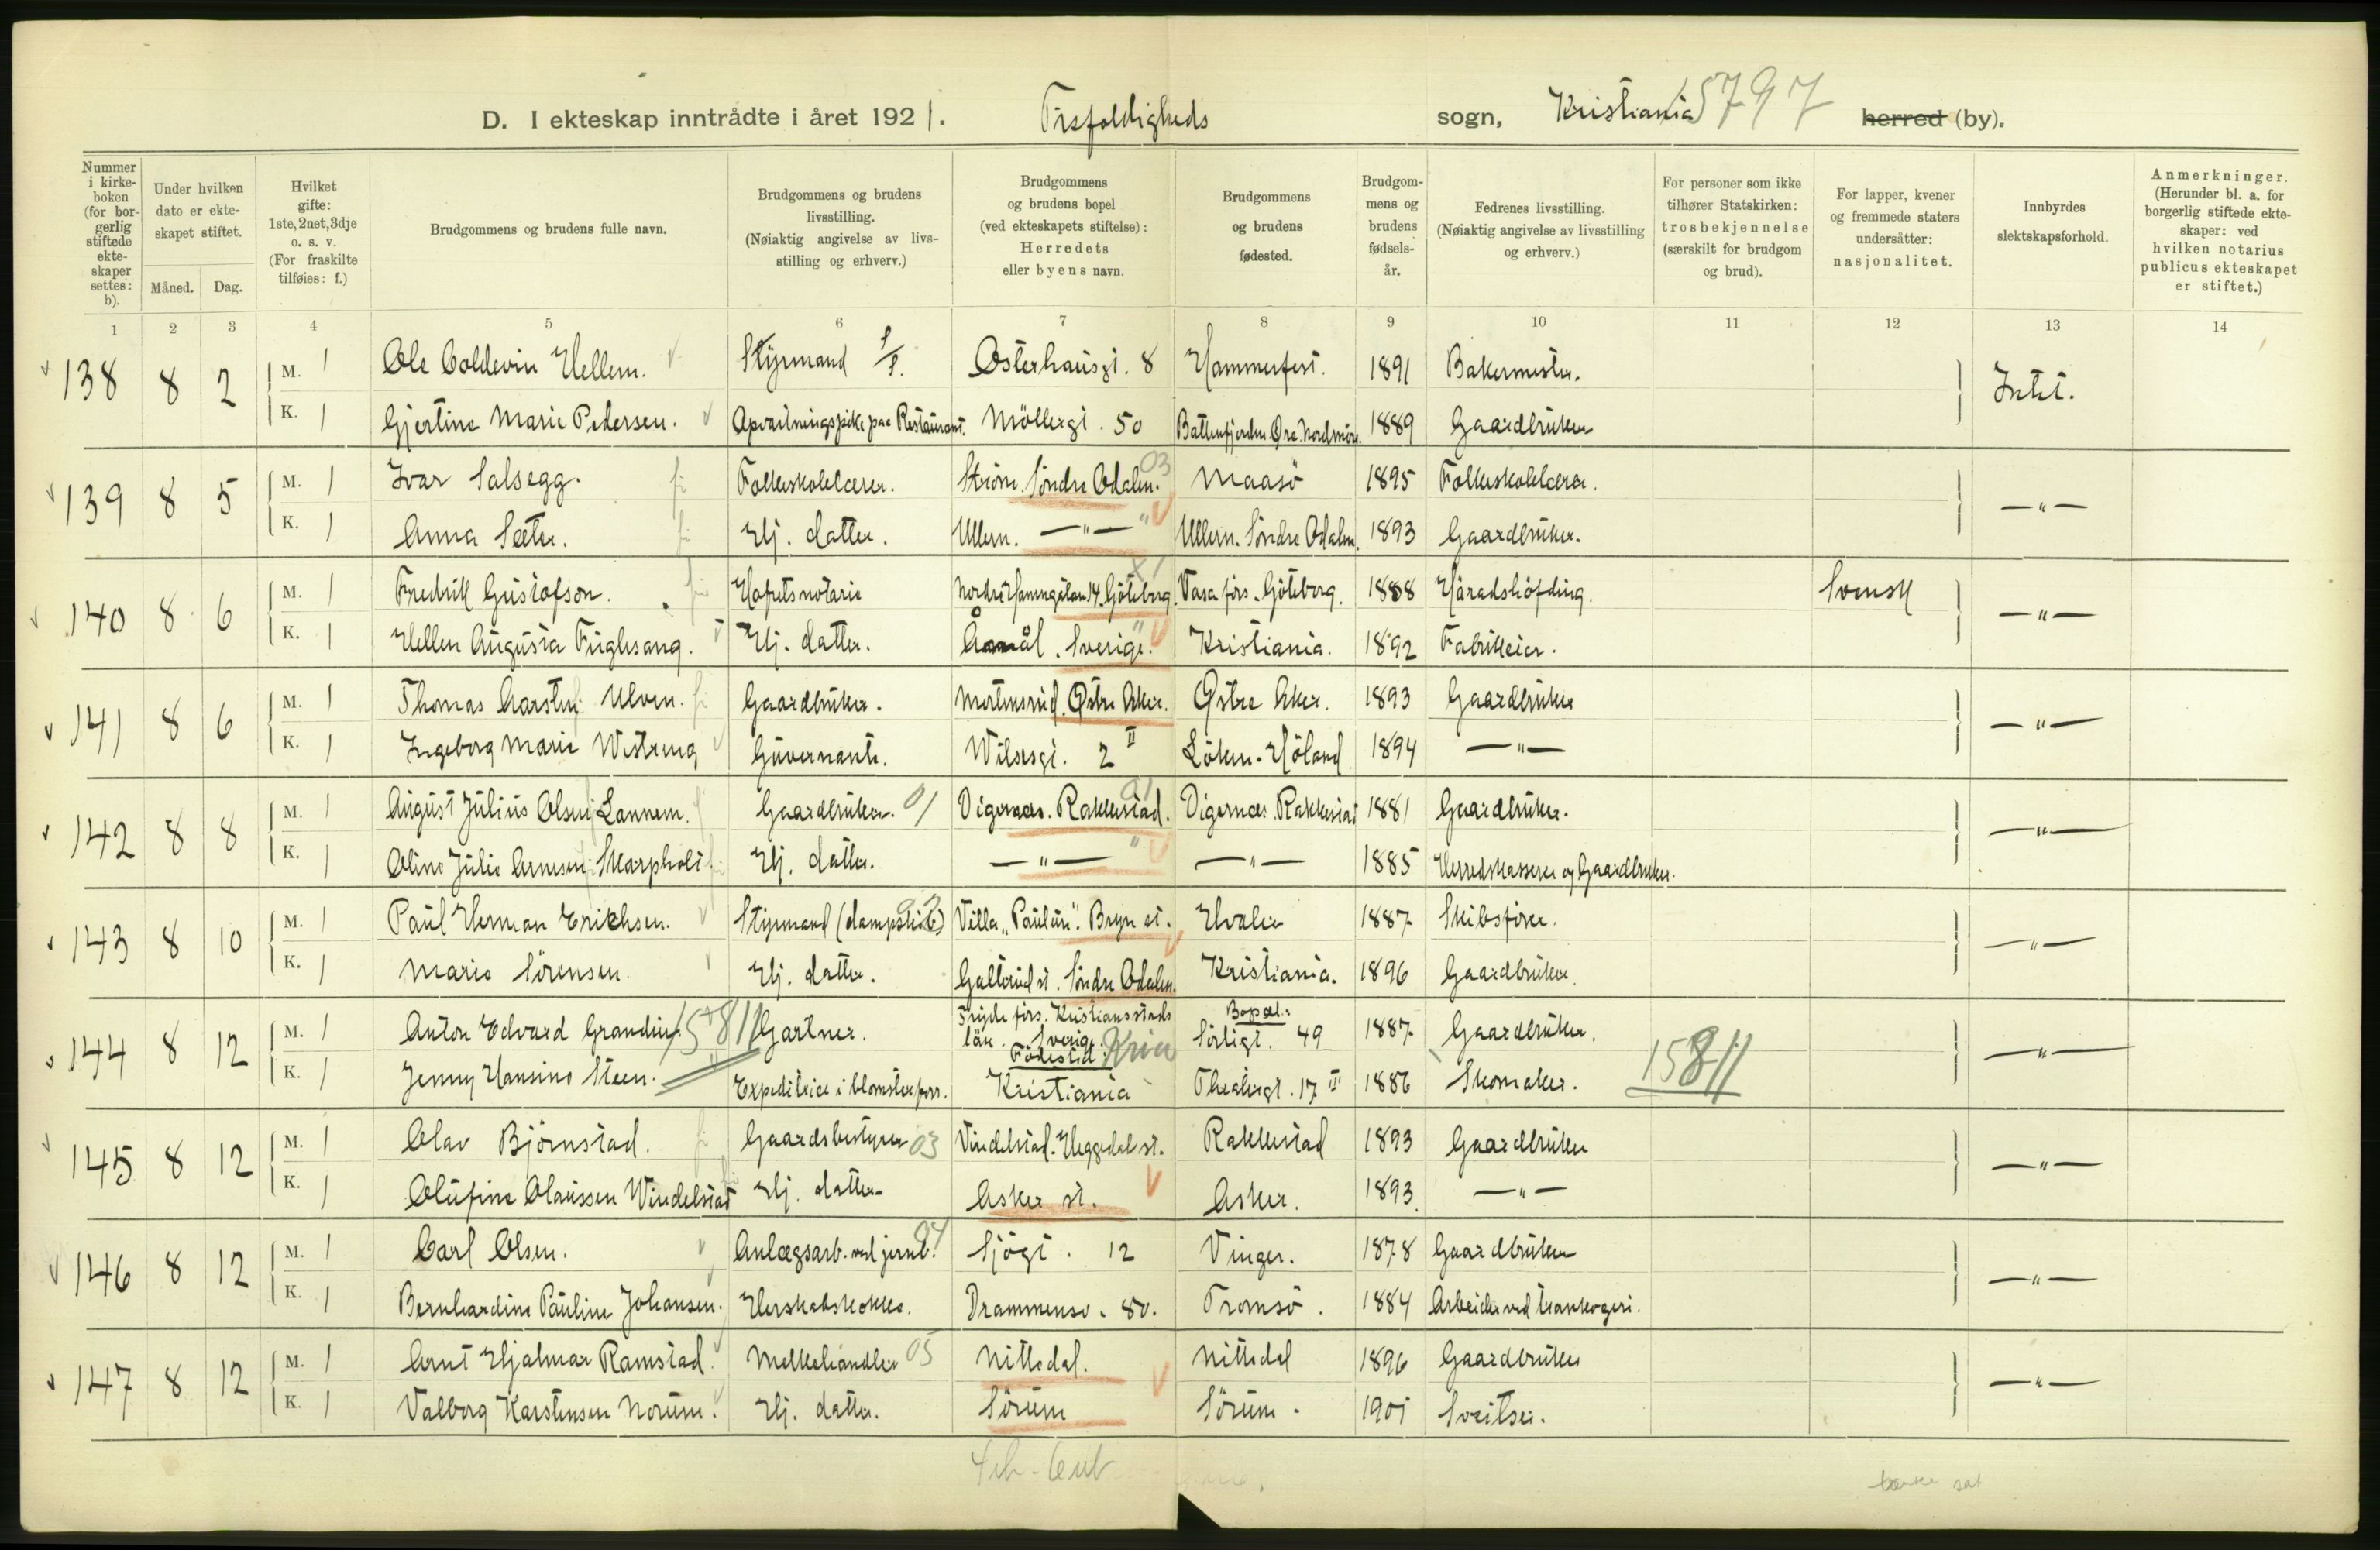 15797
D. I ekteskap inntrådte i året 1921. Trefoldigheds sogn, Kristiania herred (by).
Nummer i kirkeboken (for borgerlig stiftede ekteskaper settes: b).
Under hvilken dato er ekteskapet stiftet.
Måned. Dag.
Hvilket gifte: 1ste, 2net, 3dje o. s. v. (For fraskilte tilføies: f.)
Brudgommens og brudens fulle navn.
Brudgommens og brudens livsstilling. (Nøiaktig angivelse av livsstilling og erhverv.)
Brudgommens og brudens bopel (ved ekteskapets stiftelse): Herredets eller byens navn.
Brudgommens og brudens fødested.
Brudgommens og brudens fødselsår.
Fedrenes livsstilling. (Nøiaktig angivelse av livsstilling og erhverv.)
For personer som ikke tilhører Statskirken: trosbekjennelse (særskilt for brudgom og brud).
For lapper, kvener og fremmede staters undersåtter: nasjonalitet.
Innbyrdes slektskapsforhold.
Anmerkninger. (Herunder bl. a. for borgerlig stiftede ekteskaper: ved hvilken notarius publicus ekteskapet er stiftet.)
1 2 3 4 5 6 7 8 9 10 11 12 13 14
138 8 2 M. 1 Ole Coldevin Hellem. Styrmand Osterhausgt. 8 Hammerfest. 1891 Bakermester. Intet.
K. 1 Gjertine Marie Pedersen. Opvartningspike paa Restaurant. Möllergt. 50 Battenfjorden Øre Nordmöre. 1889 Gaardbruker
139 8 5 M. 1 Ivar Salsegg. Folkeskolelærer. Ström. Söndre Odalen. 03 Maasö 1895 Folkeskolelærer. —„—
K. 1 Anna Sæter. Hj. datter. Ullern. —„— Ullern. Söndre Odalen. 1893 Gaardbruker.
140 8 6 M. 1 Fredrik Gustafson. Hofretsnotarie Nordre Hamngatan 14. Göteborg. Vasa förs. Göteborg. 1888 Häradshöfding. Svensk —„—
K. 1 Hellen Augusta Fuglesang. Hj. datter. Åmål. Sverige. Kristiania. 1892 Fabrikeier.
141 8 6 M. 1 Thomas Carsten Ulven. Gaardbruker. Mortensrud. Østre Aker. Østre Aker. 1893 Gaardbruker —„—
K. 1 Ingeborg Marie Westreng Guvernante. Wilsesgt. 2 II Löken. Höland 1894 —„—
142 8 8 M. 1 August Julius Olsen Lannem. Gaardbruker. 01 Vigernæs. Rakkestad. 01 Vigernæs. Rakkestad 1881 Gaardbruker. —„—
K. 1 Oline Julie Arnesen Skarpholt Hj. datter. —„— —„— 1885 Herredskasserer og Gaardbruker.
143 8 10 M. 1 Paul Herman Erichsen. Styrmand (dampskib) Villa „Paulun". Bryn st. Hvaler 1887 Skibsförer. —„—
K. 1 Marie Sörensen. Hj. datter. Galterud st. Söndre Odalen. Kristiania. 1896 Gaardbruker.
144 8 12 M. 1 Anton Edvard Grandin. 15811 Gartner. förs. Kristiansstads län. Sverige. Kria Bopæl: Sörligt. 49 1887 Gaardbruker. —„—
K. 1 Jenny Hansine Steen. Expeditrice i blomsterforr. Födested: Kristiania Theatergt. 17 III 1886 Skomaker. 15811
145 8 12 M. 1 Olav Björnstad. Gaardsbestyrer 03 Vindelstad. Heggedal st. Rakkestad 1893 Gaardbruker —„—
K. 1 Olufine Olaussen Windelstad Hj. datter Asker st. Asker. 1893 —„—
146 8 12 M. 1 Carl Olsen. Anlægsarb. ved jernb. 04 Sjögt. 12 Vinger. 1878 Gaardbruker —„—
K. 1 Bernhardine Pauline Johansen. Herskabskokke. Drammensv. 80. Tromsö. 1884 Arbeider ved trankogeri.
147 8 12 M. 1 Arnt Hjalmar Ramstad. Melkehandler 05 Nittedal. Nittedal 1896 Gaardbruker —„—
K. 1 Valborg Karstensen Norum. Hj. datter. Sörum Sörum. 1901 Sveitser.